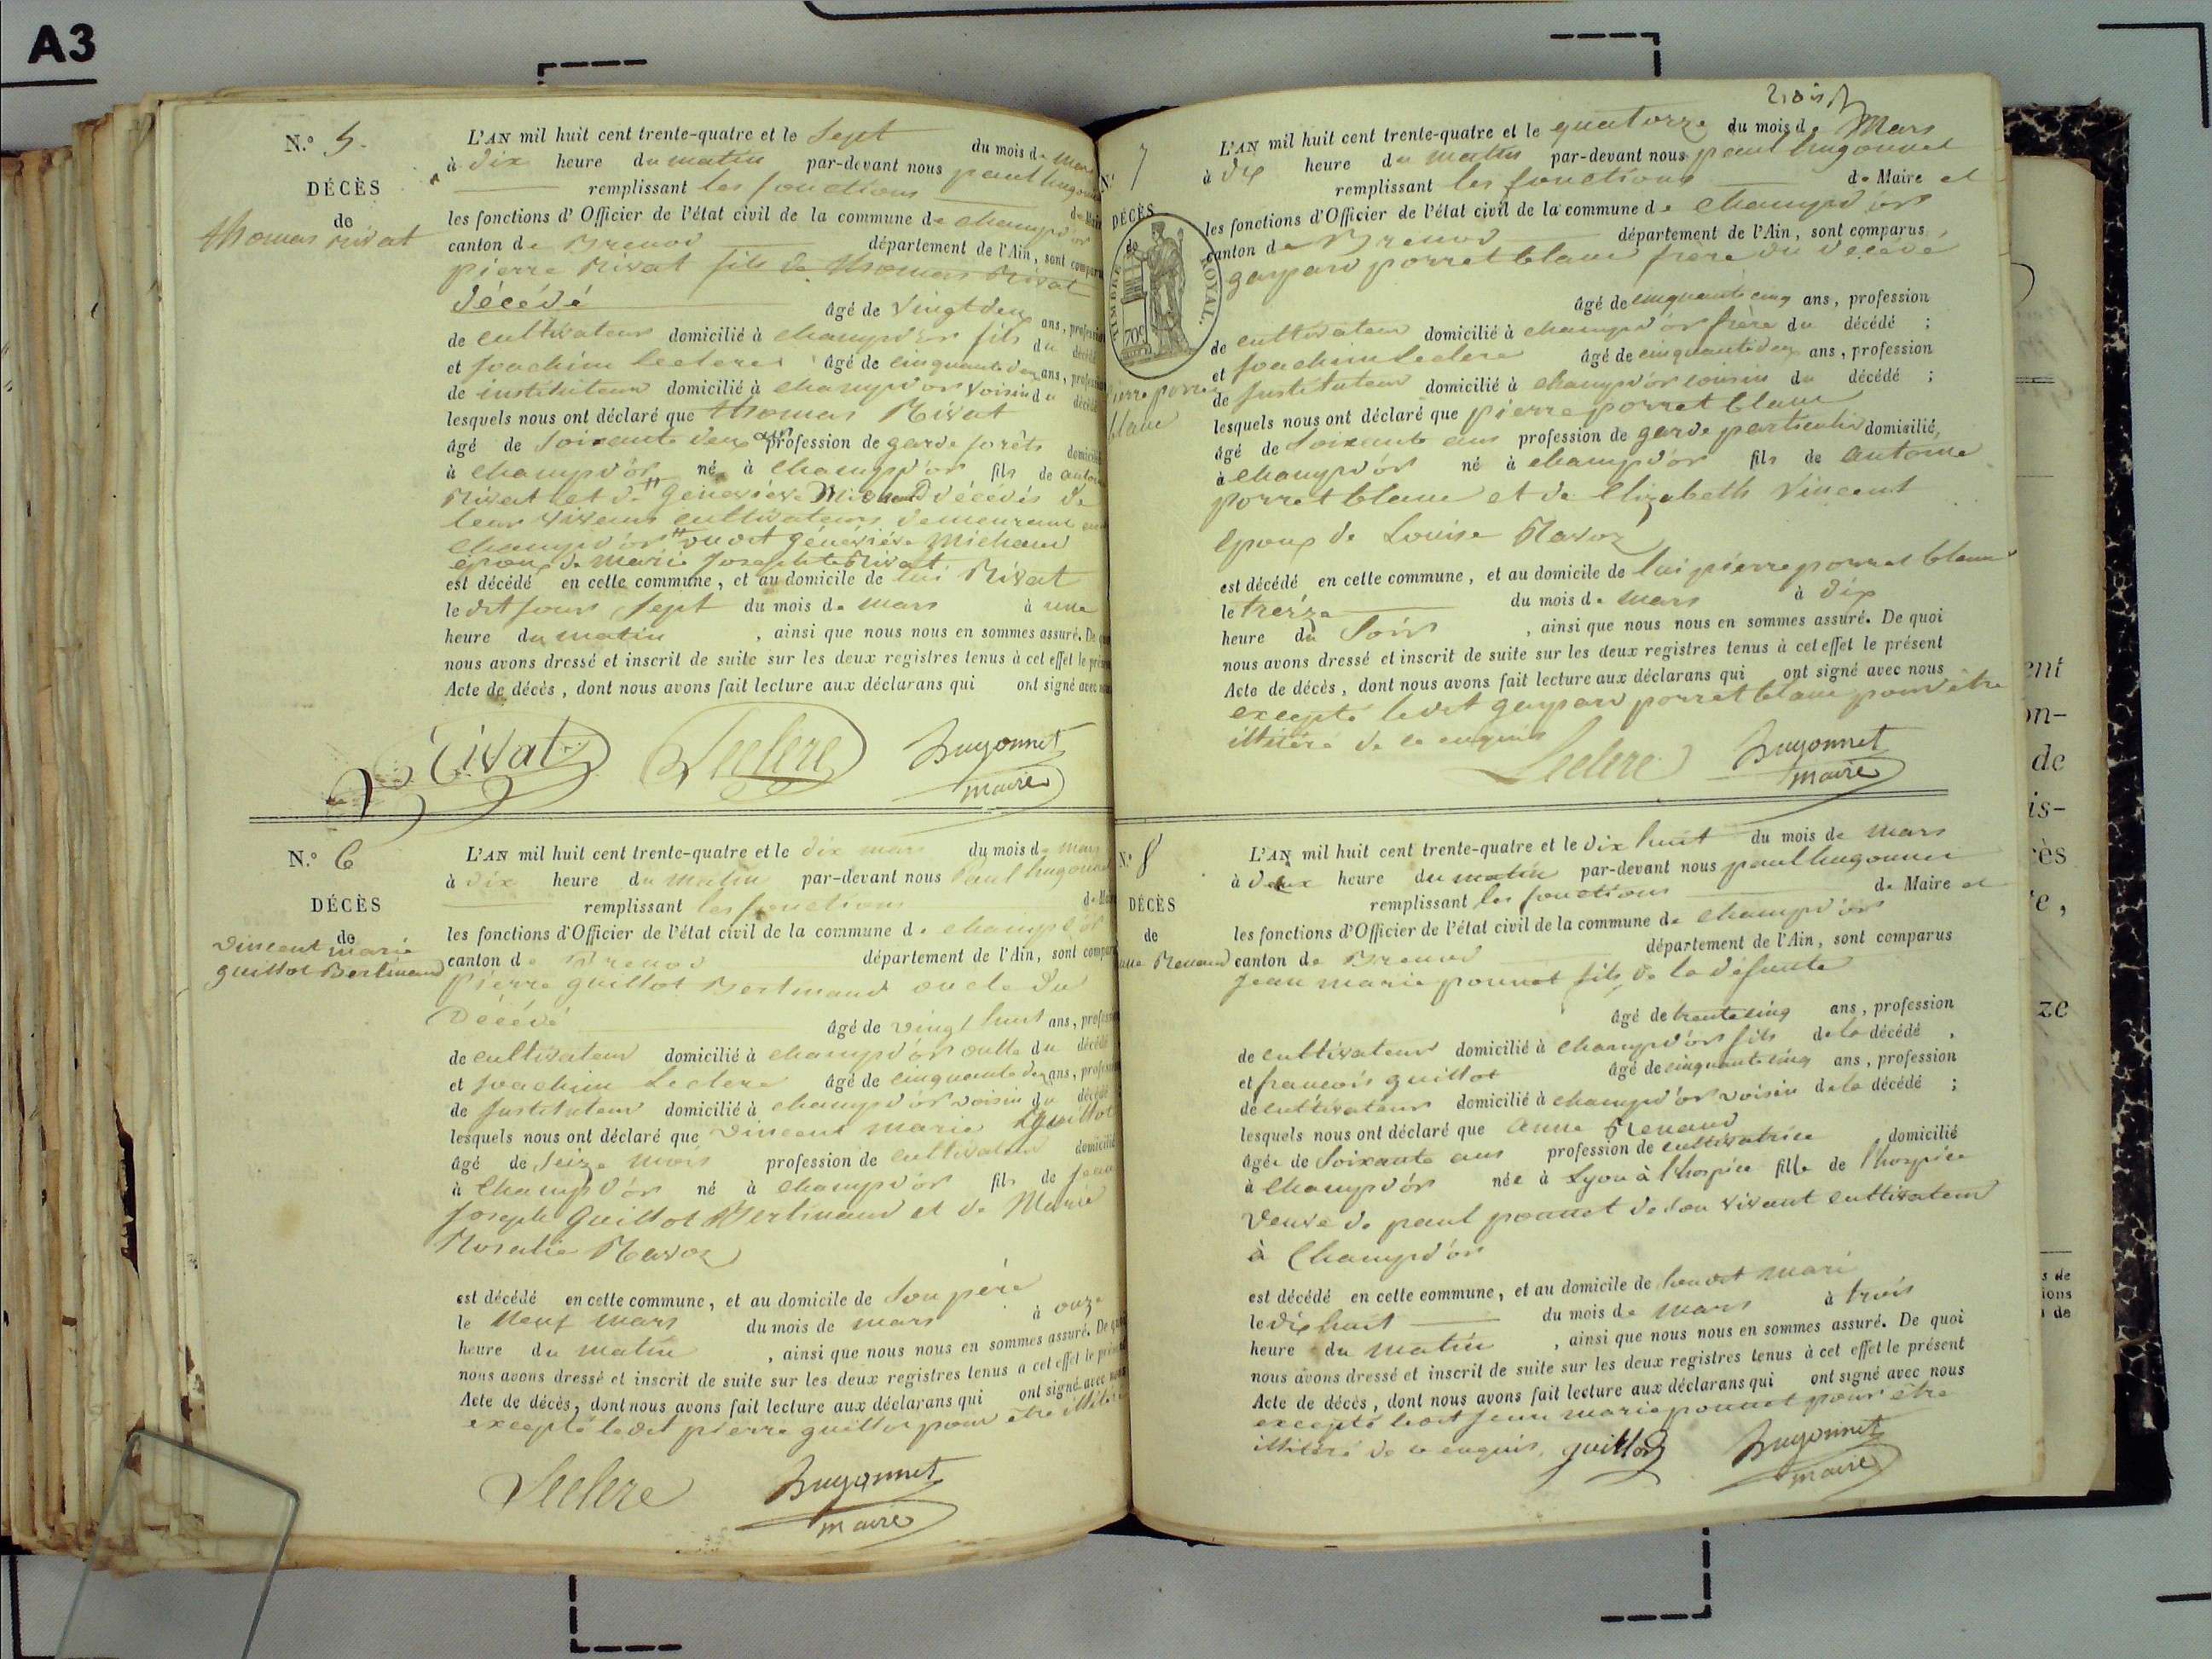 A3
N.° 5.
DÉCÈS
de
thomas rivat
L'AN mil huit cent trente-quatre et le Sept du mois de mars
à dix heure du matin par-devant nous paul hugonnet
remplissant les fonctions de Maire
les fonctions d'Officier de l'état civil de la commune de champd'or
canton de Brenod département de l'Ain, sont comparus
pierre Rivat fils de thomas Rivat
décédé âgé de vingt deux ans, profession
de cultivateur domicilié à champd'or fils du décédé
et joachim leclerc âgé de cinquante deux ans, profession
de instituteur domicilié à champd'or voisin du décédé
lesquels nous ont déclaré que thomas Rivat
âgé de soixante deux ans profession de garde forêts domicilié
à champd'or né à champd'or fils de antoine
Rivat et de # Geneviève décédés de
leur vivans cultivateurs demeurant
champd'or # Geneviève Michaud
époux de marie josephte Rivat
est décédé en cette commune, et au domicile de lui Rivat
le dit jour sept du mois de mars à une
heure du matin, ainsi que nous nous en sommes assuré. De quoi
nous avons dressé et inscrit de suite sur les deux registres tenus à cet effet le présent
Acte de décès, dont nous avons fait lecture aux déclarans qui ont signé avec nous
Rivat Leclerc hugonnet
maire
N.° 6
DÉCÈS
de
vincent marie
guillot Bertinand
L'AN mil huit cent trente-quatre et le dix mars du mois de mars
à dix heure du matin par-devant nous Paul hugonnet
remplissant les fonctions de Maire
les fonctions d'Officier de l'état civil de la commune de champd'or
canton de Brenod département de l'Ain, sont comparus
pierre guillot Bertinand oncle du
Décédé âgé de vingt huit ans, profession
de cultivateur domicilié à champd'or oncle du décédé
et joachim Leclerc âgé de cinquante deux ans, profession
de Instituteur domicilié à champd'or voisin du décédé
lesquels nous ont déclaré que vincent marie guillot
âgé de seize mois profession de cultivateur domicilié
à Champd'or né à champd'or fils de jean
joseph Guillot Bertinand et de Marie
Rosalie Ravoz
est décédé en cette commune, et au domicile de son père
le neuf mars du mois de mars à onze
heure du matin, ainsi que nous nous en sommes assuré. De quoi
nous avons dressé et inscrit de suite sur les deux registres tenus à cet effet le présent
Acte de décès, dont nous avons fait lecture aux déclarans qui ont signé avec nous
excepté ledit pierre guillot pour être illitéré
Leclerc hugonnet
maire
trois
N.° 7
DÉCÈS
de
TIMBRE ROYAL.
70c
pierre porret
blanc
L'AN mil huit cent trente-quatre et le quatorze du mois de Mars
à dix heure du matin par-devant nous paul hugonnet
remplissant les fonctions de Maire et
les fonctions d'Officier de l'état civil de la commune de champd'or
canton de Brenod département de l'Ain, sont comparus
gaspard porret blanc frère du décédé
âgé de cinquante cinq ans, profession
de cultivateur domicilié à champd'or frère du décédé ;
et joachim Leclerc âgé de cinquante deux ans, profession
de Instituteur domicilié à champd'or voisin du décédé ;
lesquels nous ont déclaré que pierre porret blanc
âgé de soixante ans profession de garde particulier domicilié,
à champd'or né à champd'or fils de antoine
porret blanc et de Elizabeth Vincent
époux de Louise Ravoz
est décédé en cette commune, et au domicile de lui pierre porret blanc
le treize du mois de mars à dix
heure du soir, ainsi que nous nous en sommes assuré. De quoi
nous avons dressé et inscrit de suite sur les deux registres tenus à cet effet le présent
Acte de décès, dont nous avons fait lecture aux déclarans qui ont signé avec nous
excepté ledit gaspard porret blanc pour être
illitéré de ce enquis
Leclerc hugonnet
maire
N.° 8
DÉCÈS
de
anne Renaud
L'AN mil huit cent trente-quatre et le dix huit du mois de mars
à deux heure du matin par-devant nous paul hugonnet
remplissant les fonctions de Maire et
les fonctions d'Officier de l'état civil de la commune de champd'or
canton de Brenod département de l'Ain, sont comparus
jean marie ponnet fils de la défunte
âgé de trente cinq ans, profession
de cultivateur domicilié à champd'or fils de la décédé,
et francois guillot âgé de cinquante cinq ans, profession
de cultivateur domicilié à champd'or voisin de la décédé ;
lesquels nous ont déclaré que anne Renaud
âgée de soixante ans profession de cultivatrice domicilié
à champd'or née à Lyon à l'hospice fille de l'hospice
veuve de paul ponnet de son vivant cultivateur
à Champd'or
est décédé en cette commune, et au domicile de son dit mari
le dix huit du mois de mars à trois
heure du matin, ainsi que nous nous en sommes assuré. De quoi
nous avons dressé et inscrit de suite sur les deux registres tenus à cet effet le présent
Acte de décès, dont nous avons fait lecture aux déclarans qui ont signé avec nous
excepté ledit jean marie ponnet pour être
illitéré de ce enquis. guillot hugonnet
maire